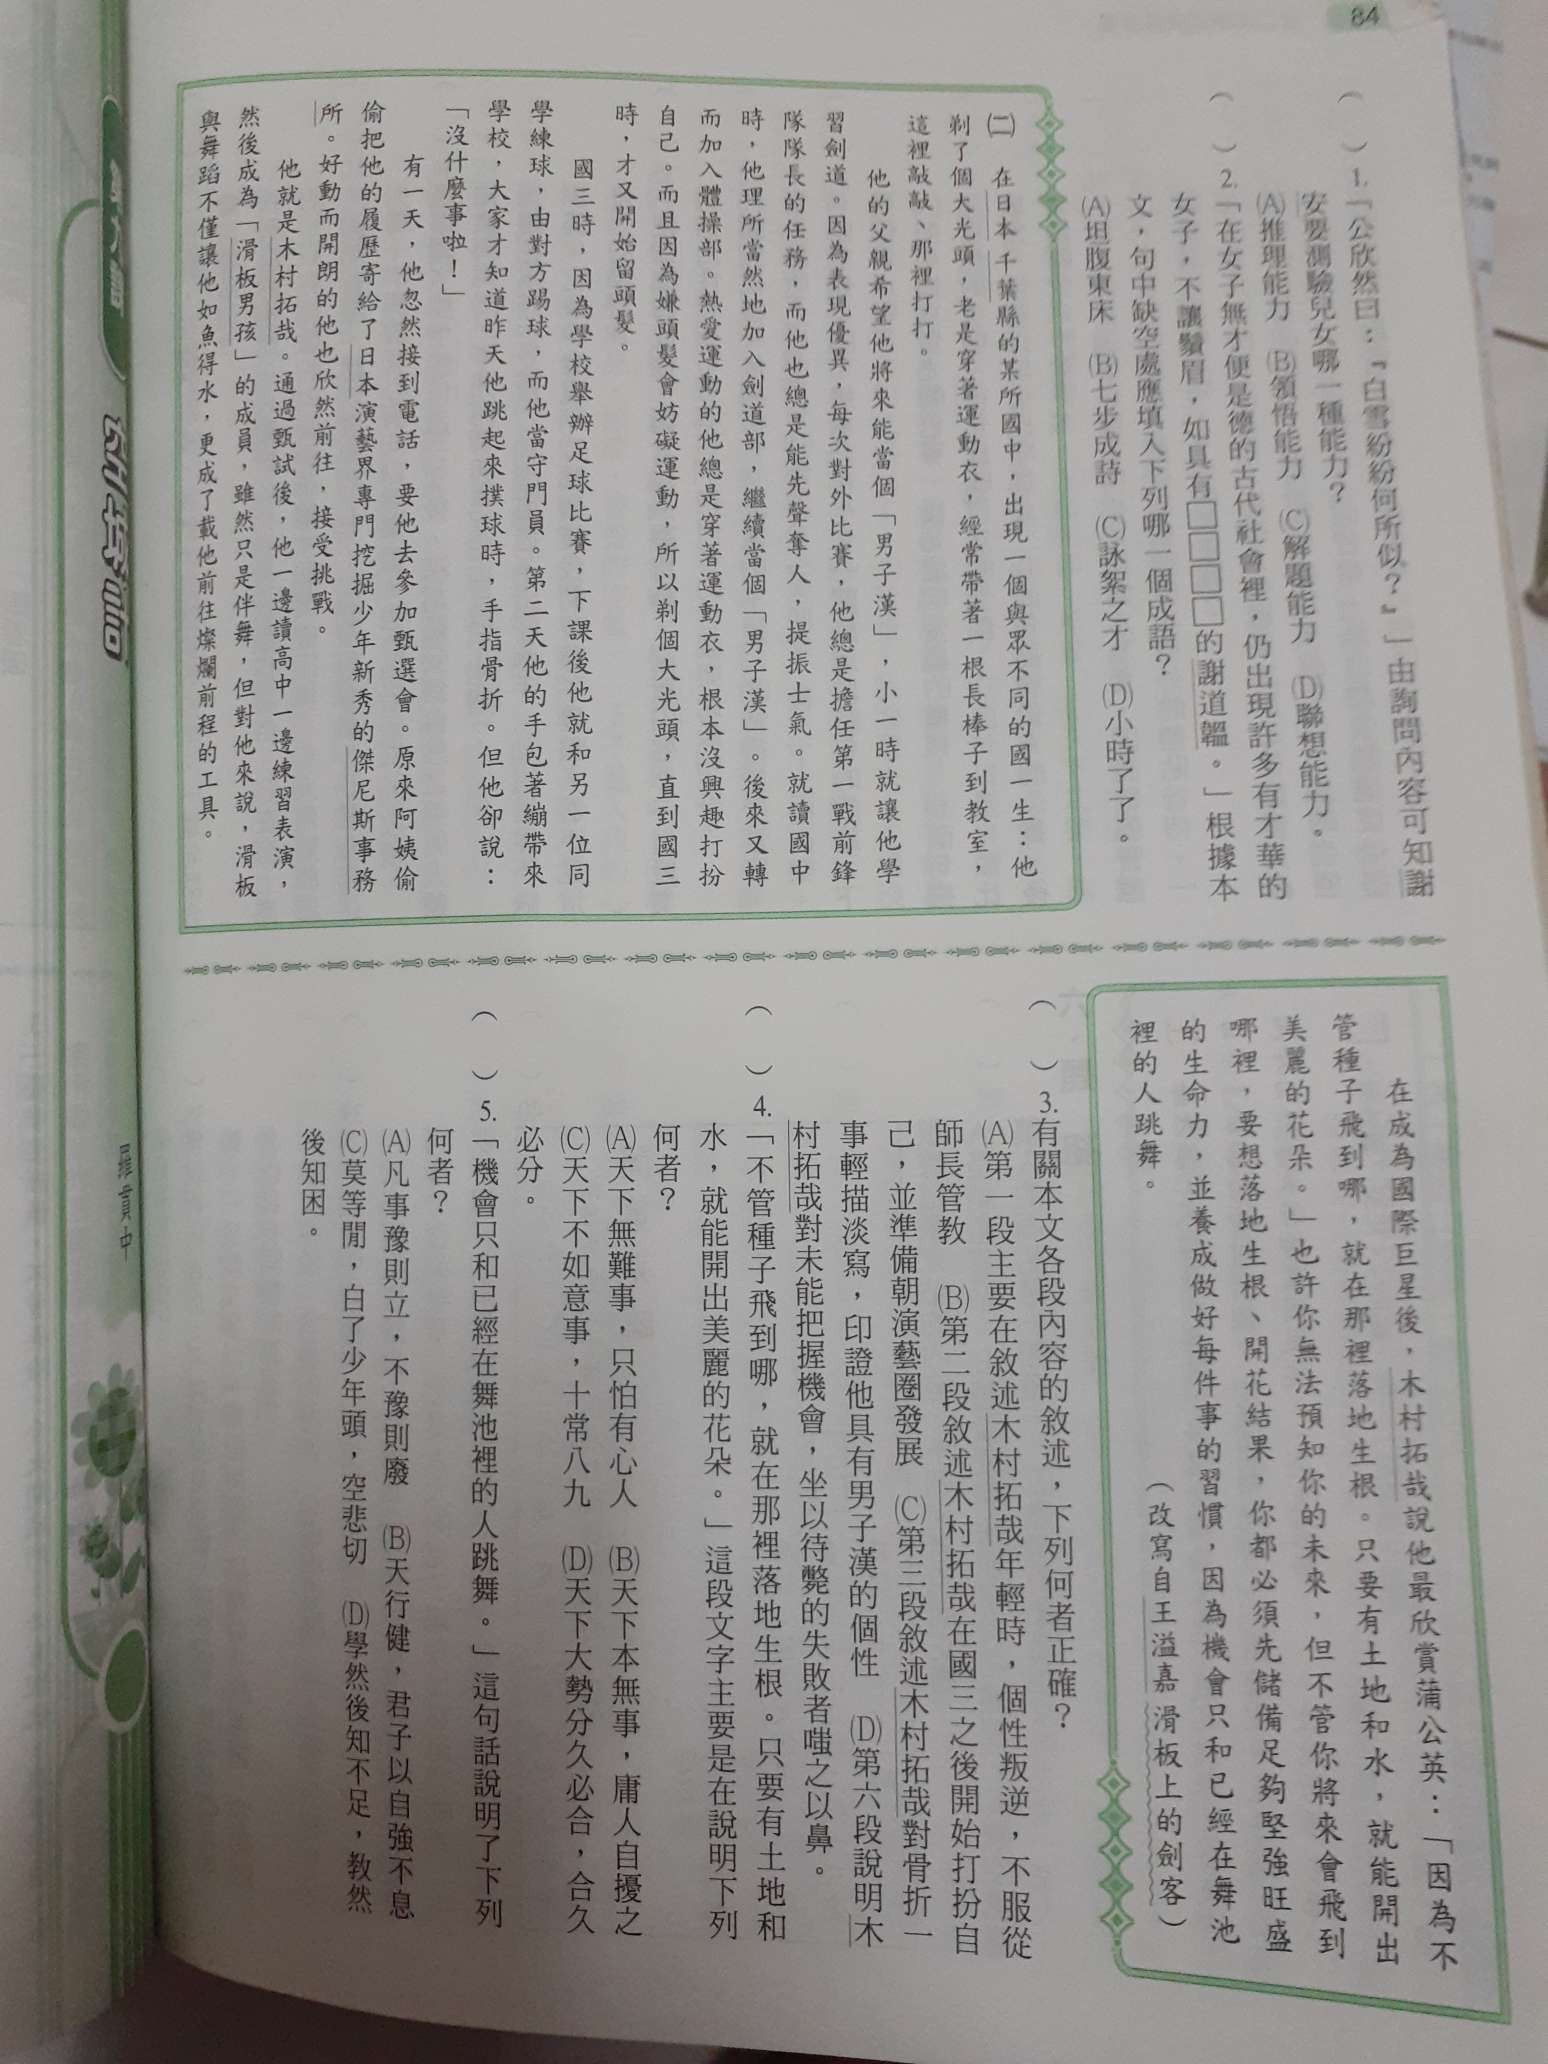 84
（　）1.「公欣然曰：『白雪紛紛何所似？』」由詢問內容可知謝
安要測驗兒女哪一種能力？
(A)推理能力　(B)領悟能力　(C)解題能力　(D)聯想能力。
（　）2.「在女子無才便是德的古代社會裡，仍出現許多有才華的
女子，不讓鬚眉，如具有□□□□的謝道韞。」根據本
文，句中缺空處應填入下列哪一個成語？
(A)坦腹東床　(B)七步成詩　(C)詠絮之才　(D)小時了了。
㈡　在日本千葉縣的某所國中，出現一個與眾不同的國一生：他
剃了個大光頭，老是穿著運動衣，經常帶著一根長棒子到教室，
這裡敲敲、那裡打打。
他的父親希望他將來能當個「男子漢」，小一時就讓他學
習劍道。因為表現優異，每次對外比賽，他總是擔任第一戰前鋒
隊隊長的任務，而他也總是能先聲奪人，提振士氣。就讀國中
時，他理所當然地加入劍道部，繼續當個「男子漢」。後來又轉
而加入體操部。熱愛運動的他總是穿著運動衣，根本沒興趣打扮
自己。而且因為嫌頭髮會妨礙運動，所以剃個大光頭，直到國三
時，才又開始留頭髮。
國三時，因為學校舉辦足球比賽，下課後他就和另一位同
學練球，由對方踢球，而他當守門員。第二天他的手包著繃帶來
學校，大家才知道昨天他跳起來撲球時，手指骨折。但他卻說：
「沒什麼事啦！」
有一天，他忽然接到電話，要他去參加甄選會。原來阿姨偷
偷把他的履歷寄給了日本演藝界專門挖掘少年新秀的傑尼斯事務
所。好動而開朗的他也欣然前往，接受挑戰。
他就是木村拓哉。通過甄試後，他一邊讀高中一邊練習表演，
然後成為「滑板男孩」的成員，雖然只是伴舞，但對他來說，滑板
與舞蹈不僅讓他如魚得水，更成了載他前往燦爛前程的工具。
在成為國際巨星後，木村拓哉說他最欣賞蒲公英：「因為不
管種子飛到哪，就在那裡落地生根。只要有土地和水，就能開出
美麗的花朵。」也許你無法預知你的未來，但不管你將來會飛到
哪裡，要想落地生根、開花結果，你都必須先儲備足夠堅強旺盛
的生命力，並養成做好每件事的習慣，因為機會只和已經在舞池
裡的人跳舞。　（改寫自王溢嘉滑板上的劍客）
（　）3.有關本文各段內容的敘述，下列何者正確？
(A)第一段主要在敘述木村拓哉年輕時，個性叛逆，不服從
師長管教　(B)第二段敘述木村拓哉在國三之後開始打扮自
己，並準備朝演藝圈發展　(C)第三段敘述木村拓哉對骨折一
事輕描淡寫，印證他具有男子漢的個性　(D)第六段說明木
村拓哉對未能把握機會，坐以待斃的失敗者嗤之以鼻。
（　）4.「不管種子飛到哪，就在那裡落地生根。只要有土地和
水，就能開出美麗的花朵。」這段文字主要是在說明下列
何者？
(A)天下無難事，只怕有心人　(B)天下本無事，庸人自擾之
(C)天下不如意事，十常八九　(D)天下大勢分久必合，合久
必分。
（　）5.「機會只和已經在舞池裡的人跳舞。」這句話說明了下列
何者？
(A)凡事豫則立，不豫則廢　(B)天行健，君子以自強不息
(C)莫等閒，白了少年頭，空悲切　(D)學然後知不足，教然
後知困。
羅貫中